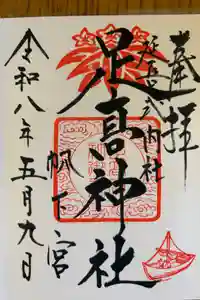 奉拝
延喜式内社
足高神社
帆下宮
令和八年五月九日